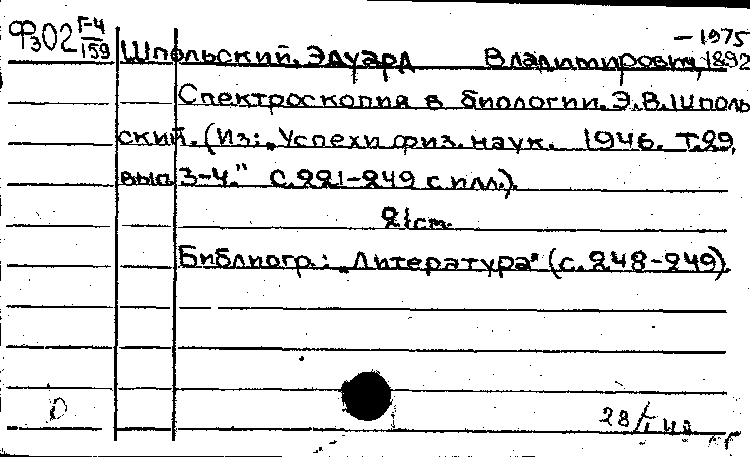 Фз02 Г-4/159
Шпольский, Эдуард Владимирович, 1892
– 1975
Спектроскопия в биологии. Э.В.Шполь
ский. (Из: „Успехи физ. наук. 1946. Т.29,
вып. 3-4." С.221-249 с илл.).
21см.
Библиогр.: „Литература" (с.248-249).
28/I 48